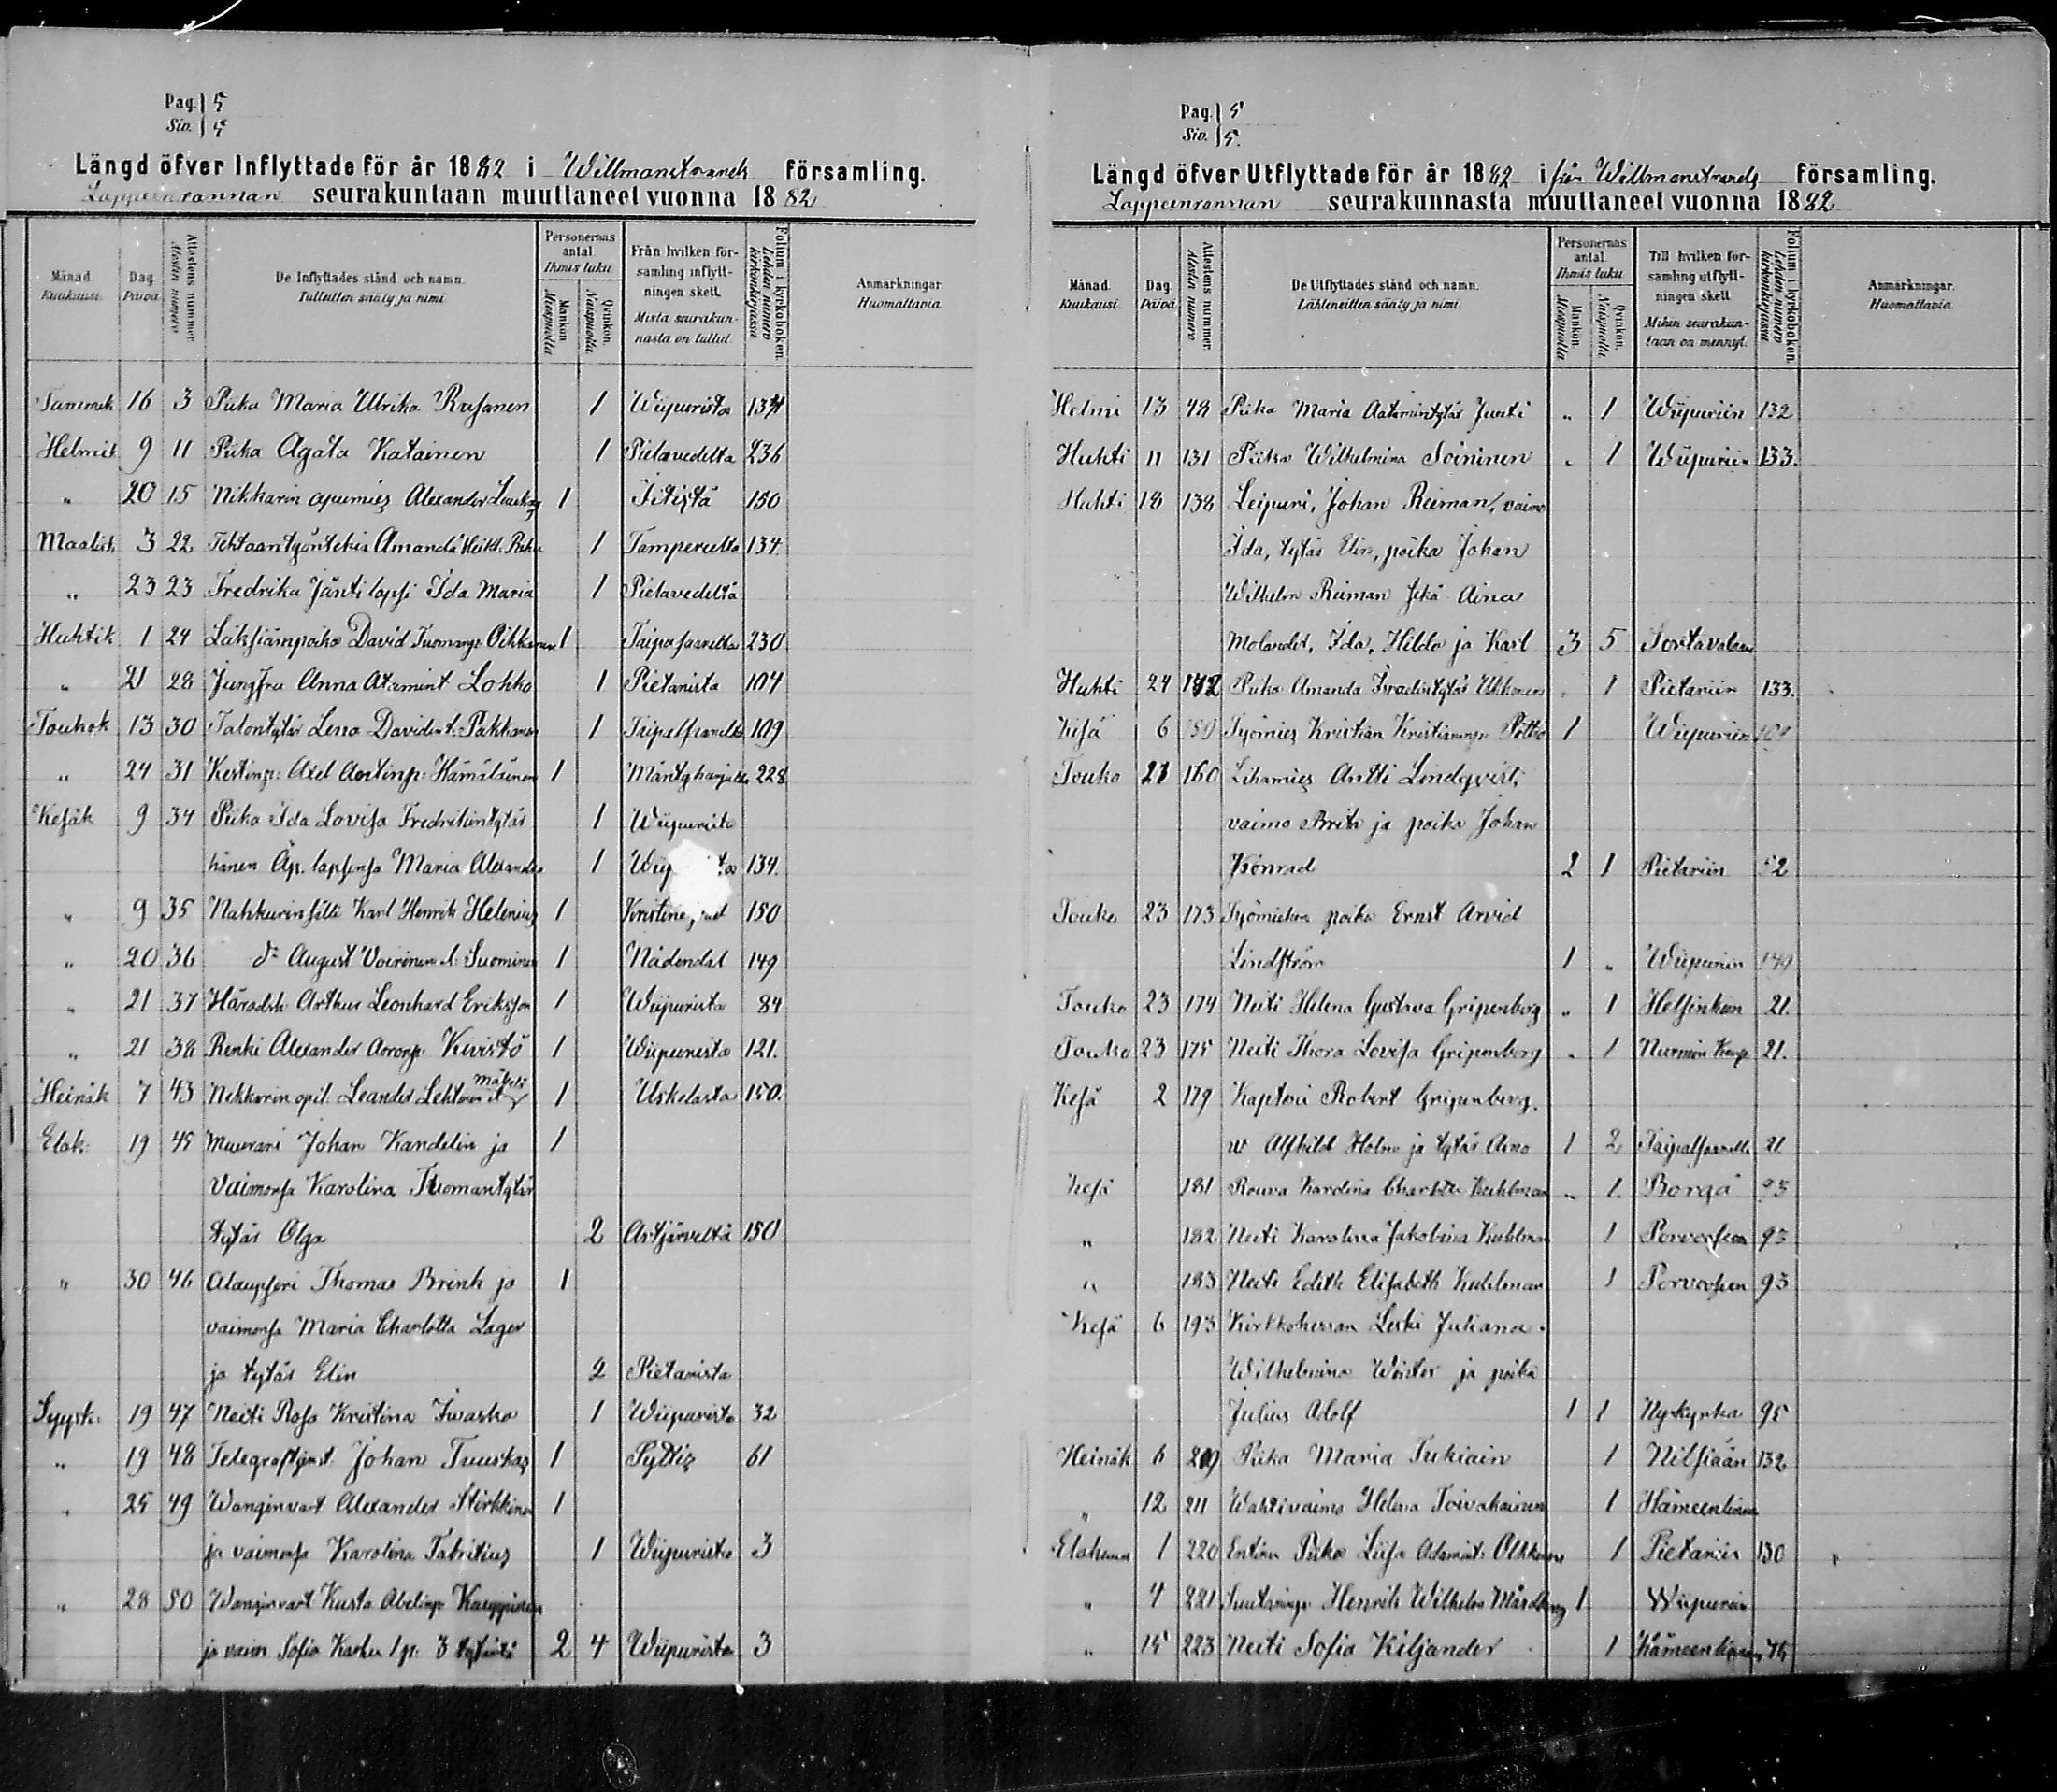 Pag. 5
Siv. 5
Längd öfver Inflyttade för år 1882 i Willmanstrands församling.
Lappeenrannan seurakuntaan muuttaneet vuonna 1882
Månad. Kuukausi.
Dag. Päivä.
Attestens nummer. Atestin numero
De Inflyttades stånd och namn. Tulleitten sääty ja nimi.
Personernas antal. Ihmis luku.
Mankön. Miespuolia
Qvinkön. Naispuolia
Från hvilken församling inflyttningen skett. Mistä seurakunnasta on tullut.
Folium i kyrkoboken. Lehden numero kirkonkirjassa
Anmärkningar. Huomattavia.
Tammik 16 3 Piika Maria Ulrika Rasanen 1 Wiipurista 134
Helmik 9 11 Piika Agata Katainen 1 Pielavedeltä 236
" 20 15 Nikkarin apumies Alexander 1 Iitistä 150
Maalisk 3 22 Tehtaantyöntekiä Amanda Heikt. 1 Tampereelta 134
" 23 23 Fredrika Jäntti lapsi Ida Maria 1 Pielavedeltä
Huhtik 1 24 David Tuomanp. Oikkonen 1 Taipalsaarelta 230
" 21 28 Jungfru Anna Atamint Lohko 1 Pietarista 104
Toukok 13 30 Talontytär Lena Davidint. Pakkanen 1 Taipalsaarelta 109
" 24 31 Kestinp: Axel Antinp: Hämäläinen 1 Mäntyharjulta 228
Kesäk 9 34 Piika Ida Lovisa Fredrikintytär 1 Wiipurista
hänen Äp. lapsensa Maria Alexandra 1 134.
" 9 35 Nahkurinsälli Karl Henrik Helenius 1 150
" 20 36 d:o August Woirinen l. Suominen 1 Nådendal 149
" 21 37 Häradsh. Arthur Leonhard Eriksson 1 Wiipurista 84
" 21 38 Renki Alexander Aronp. Kuvistö 1 Wiipurista 121.
Heinäk 7 43 Nikkarin opil. Leander Lehtonen 1 Uskelasta 150.
Elok. 19 45 Muurari Johan Kandelin ja 1
Vaimonsa Karolina Tuomantytär
tytär Olga 2 Artjärveltä 150
" 30 46 Alaupseri Thomas Brink ja 1
vaimonsa Maria Charlotta Lager
ja tytär Elin 2 Pietarista
Syysk. 19 47 Neiti Rosa Kristina Iwaska 1 Wiipurista 32
" 19 48 Telegraftjenst. Johan Tuuskas 1 Pyttis 61
" 25 49 Wanginvart Alexander Stirkkinen 1
ja vaimonsa Karolina Fabritius 1 Wiipurista 3
" 28 50 Wanginvart Kusta Abelinp Kauppinen
ja vaim Sofia Karhu 1 p. 3 tytärtä 2 4 Wiipurista 3
Pag. 5
Siv. 5.
Längd öfver Utflyttade för år 1882 i från Willmanstrands församling.
Lappeenrannan seurakunnasta muuttaneet vuonna 1882
Månad. Kuukausi.
Dag. Päivä.
Attestens nummer. Atestin numero
De Utflyttades stånd och namn. Lähteneitten sääty ja nimi.
Personernas antal. Ihmis luku.
Mankön. Miespuolia
Qvinkön. Naispuolia
Till hvilken församling utflyttningen skett. Mihin seurakuntaan on mennyt.
Folium i kyrkoboken. Lehden numero kirkonkirjassa
Anmärkningar. Huomattavia.
Helmi 13 48 Piika Maria Aatamintytär Juuti " 1 Wiipuriin 132
Huhti 11 131 Piika Wilhelmina Soininen " 1 Wiipuriin 133.
Huhti 18 138 Leipuri, Johan Reiman, vaimo
Ida, tytär Elin, poika Johan
Wilhelm Reiman sekä Aina
Molander, Ida, Hilda ja Karl 3 5 Sortavalaan
Huhti 24 142 Piika Amanda Ukkonen " 1 Pietariin 133.
Kesä 6 159 Työmies Kristian Kristianinp. Pöttö 1 Wiipuriin
Touko 21 160 Lihamies Antti Lindqvist,
vaimo Brita ja poika Johan
Konrad 2 1 Pietariin 52
Touko 23 173 Työmiehen poika Ernst Arvid
Lindström 1 " Wiipuriin 149
Touko 23 174 Neiti Helena Gustava Gripenberg " 1 Helsinkiin 21.
Touko 23 175 Neiti Thora Lovisa Gripenberg " 1 21.
Kesä 2 179 Kapteni Robert Gripenberg.
w Alfhild Holm ja tytär Aino 1 2 Taipalsaarelle 21
Kesä 181 Rouva Karolina Charlotta Kuhlman " 1. Borgå 93
" 182 Neiti Karolina Jakobina Kuhlman 1 Porvooseen 93
" 183 Neiti Edith Elisabeth Kuhlman 1 Porvoosen 93
Kesä 6 193 Kirkkoherran Leski Juliana
Wilhelmina Winter ja poika
Julius Adolf 1 1 Nykyrka 95
Heinäk 6 209 Piika Maria Tukiain 1 Nilsiään 132
" 12 211 Wahtivaimo Helena Toivakainen 1 Hämeenlinna
Elokuun 1 220 Entinen Piika Liisa Adamint. Olkkonen 1 Pietariin 130
" 4 221 Henrik Wilhelm Mårdberg 1 Wiipuriin
" 15 223 Neiti Sofia Kiljander 1 Hämeenlinnan 74